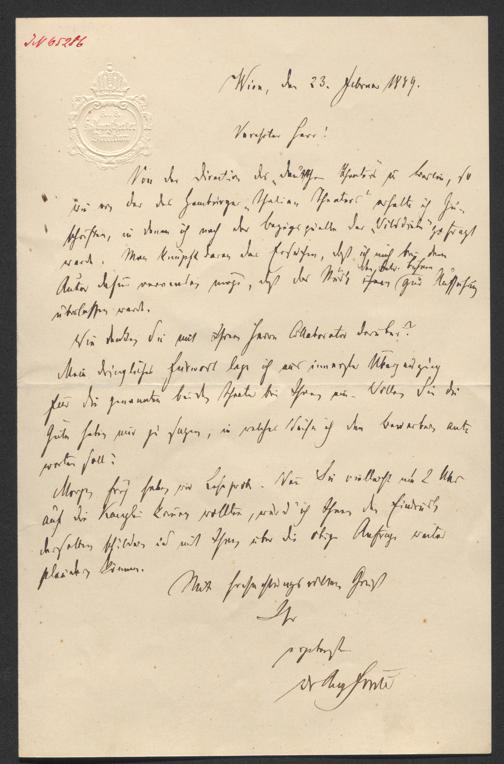 JN 65286
Wien, den 23. Februar 1889.
Verehrter Herr!
Von der Direction des „Deutschen Theaters" in Berlin, so
wie von der des Hamburger „Thalia Theaters" erhalte ich Zu-
schriften, in denen ich nach der Bezugsquelle der " gefragt
werde. Man knüpft daran das Ersuchen, daß ich mich bei dem
Autor dafür verwenden möge, daß das Stück den betr. Bühnen zur Aufführung
überlassen werde.
Wie denken Sie mit Ihrem Herrn Collaborator darüber?
Mein dringliches Fürwort lege ich aus innerster Überzeugung
für die genannten beiden Theater bei Ihnen ein. Wollen Sie die
Güte haben mir zu sagen, in welcher Weise ich den Bewerbern ant-
worten soll?
Morgen früh haben wir Leseprobe. Wenn Sie vielleicht um 2 Uhr
auf die Kanzlei kommen wollten, würde ich Ihnen den Eindruck
derselben schildern und mit Ihnen über die obige Anfrage weiter
plaudern können.
Mit hochachtungsvollem Gruß
Ihr
ergebenster
Dr Aug Förster